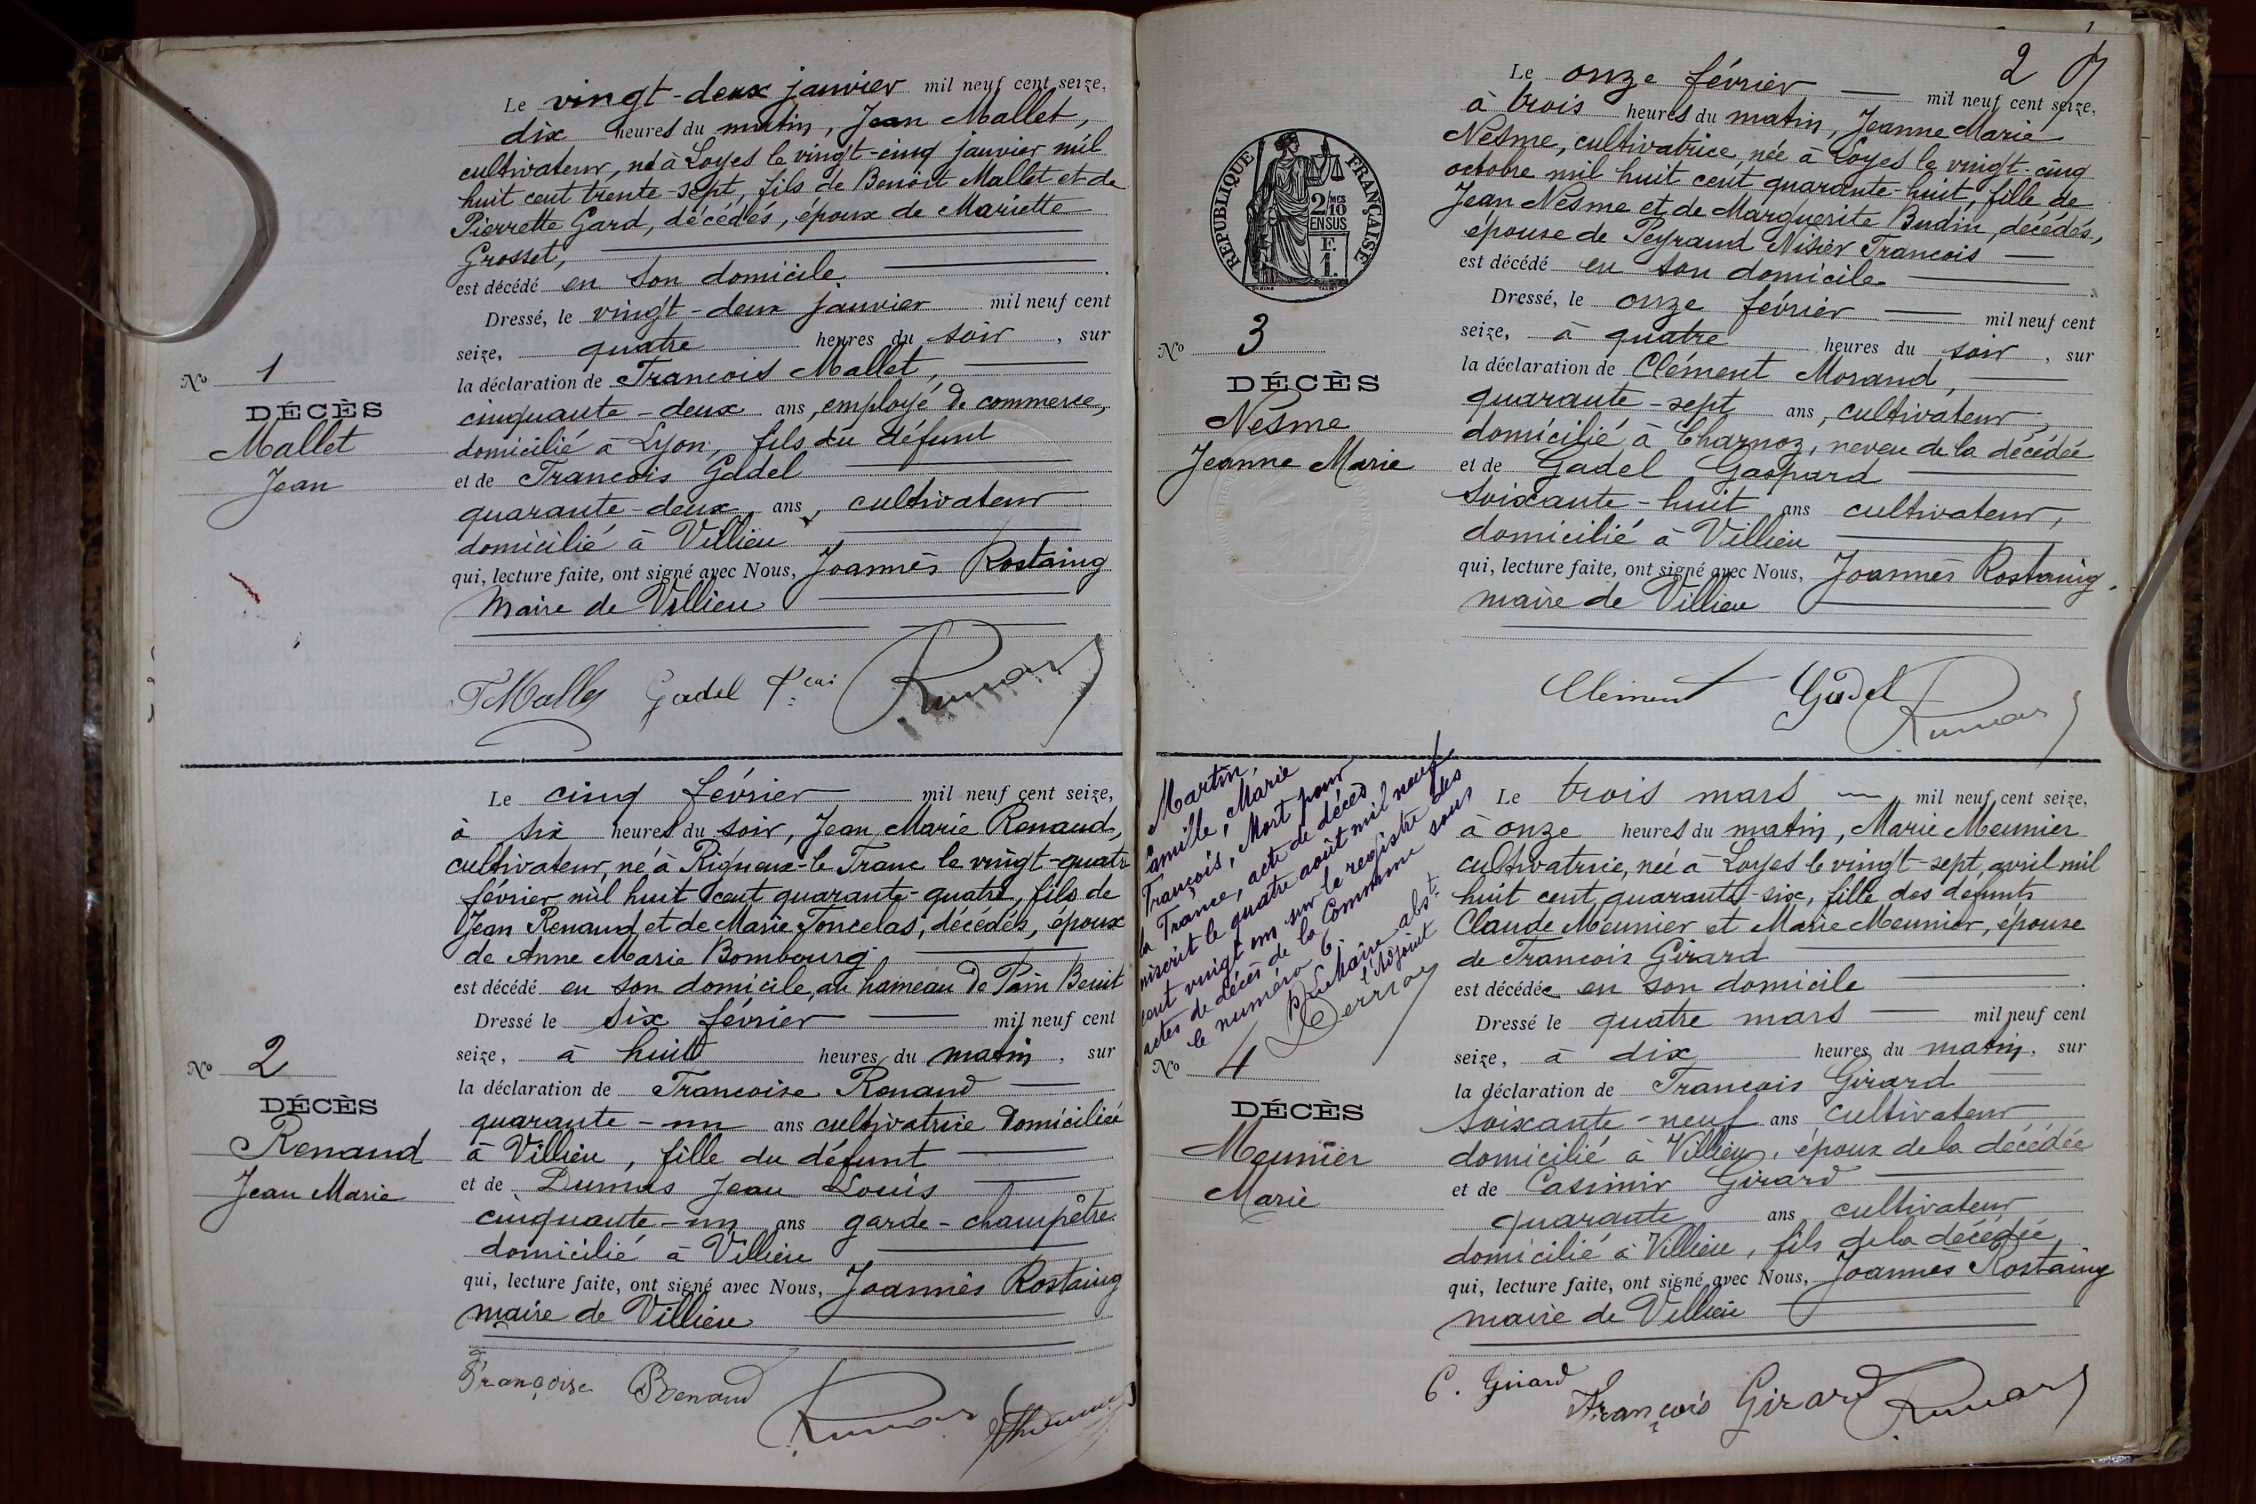 Le vingt-deux janvier mil neuf cent seize,
dix heures du matin, Jean Mallet,
cultivateur, né à Loyes le vingt-cinq janvier mil
huit cent trente-sept, fils de Benoit Mallet et de
Pierrette Gard, décédés, époux de Mariette
Grosset,
est décédé en son domicile.
Dressé, le vingt-deux janvier mil neuf cent
seize, quatre heures du soir, sur
la déclaration de Francois Mallet,
cinquante-deux ans, employé de commerce,
domicilié à Lyon, fils du défunt
et de Francois Gadel
quarante-deux ans, cultivateur
domicilié à Villieu
qui, lecture faite, ont signé avec Nous, Joannès Rostaing
Maire de Villieu
No 1
DÉCÈS
Mallet
Jean
Gadel
Le cinq février mil neuf cent seize,
à six heures du soir, Jean Marie Renaud,
cultivateur, né à Rigneux-le Franc le vingt-quatre
février mil huit cent quarante-quatre, fils de
Jean Renaud et de Marie Foncelas, décédés, époux
de Anne Marie Bombourg
est décédé en son domicile, au hameau de Pain Benit
Dressé le six février mil neuf cent
seize, à huit heures du matin, sur
la déclaration de Francoise Renaud
quarante-un ans cultivatrice domiciliée
à Villieu, fille du défunt
et de Dumas Jean Louis
cinquante-un ans garde-champêtre
domicilié à Villieu
qui, lecture faite, ont signé avec Nous, Joannès Rostaing
maire de Villieu
No 2
DÉCÈS
Renaud
Jean Marie
Françoise Renaud
2
Le onze février mil neuf cent seize,
à trois heures du matin, Jeanne Marie
Nesme, cultivatrice, née à Loyes le vingt-cinq
octobre mil huit cent quarante-huit, fille de
Jean Nesme et de Marguerite Budin, décédés,
épouse de Peyraud Nisier Francois
est décédé en son domicile.
Dressé, le onze février mil neuf cent
seize, à quatre heures du soir, sur
la déclaration de Clément Morand,
quarante-sept ans, cultivateur,
domicilié à Charnoz, neveu de la décédée
et de Gadel Gaspard
soixante-huit ans cultivateur,
domicilié à Villieu
qui, lecture faite, ont signé avec Nous, Joannès Rostaing.
maire de Villieu
RÉPUBLIQUE FRANÇAISE
2/10
EN SUS
F.
1.
No 3
DÉCÈS
Nesme
Jeanne Marie
Clément Gadel
Martin,
Camille, Marie
François, Mort pour
la France, acte de décès
inscrit le quatre août mil neuf
cent vingt un sur le registre des
actes de décès de la Commune sous
le numéro 6.
P. Le Maire abst.
l'Adjoint
Le trois mars mil neuf cent seize,
à onze heures du matin, Marie Meunier
cultivatrice, née à Loyes le vingt-sept, avril mil
huit cent quarante-six, fille des défunts
Claude Meunier et Marie Meunier, épouse
de Francois Girard
est décédée en son domicile
Dressé le quatre mars mil neuf cent
seize, à dix heures du matin, sur
la déclaration de Francois Girard
soixante-neuf ans cultivateur
domicilié à Villieu, époux de la décédée
et de Casimir Girard
quarante ans cultivateur
domicilié à Villieu, fils de la décédée,
qui, lecture faite, ont signé avec Nous, Joannès Rostaing
maire de Villieu
No 4
DÉCÈS
Meunier
Marie
C. Girard
François Girard